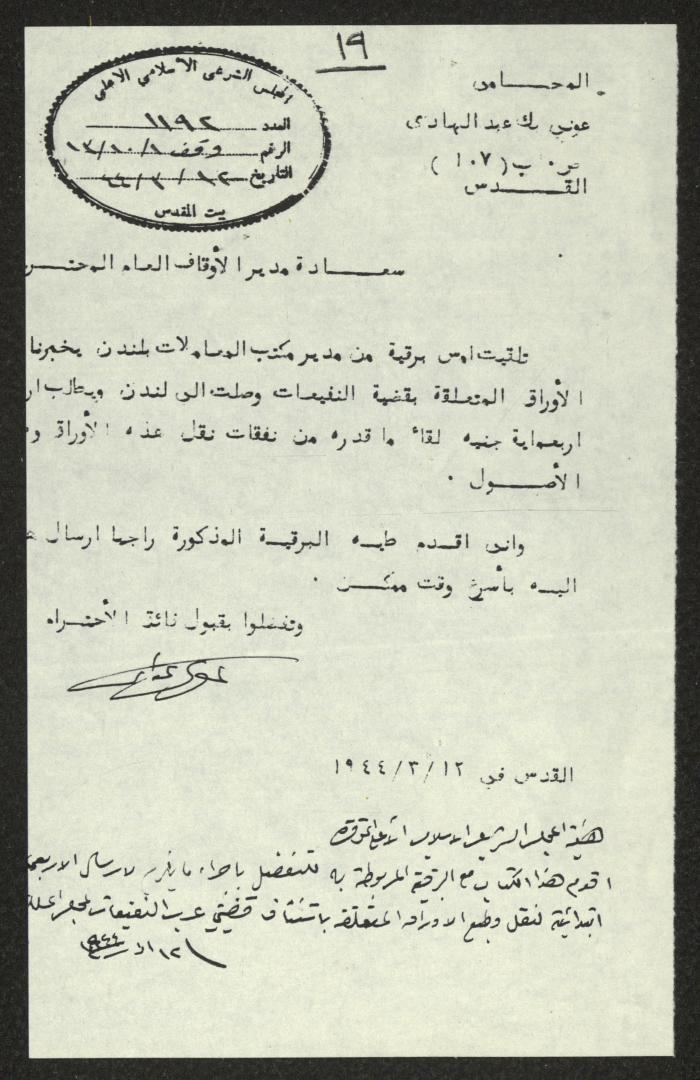 ١٩
المحامي
عوني بك عبد الهادي
ص٠ ب (١٠٧)
القدس
المجلس الشرعي الاسلامي الاعلى
العدد ١١٩٢
الرقم وقف ١٣/١٠/١
التاريخ ١٢/٣/٤٤
بيت المقدس
سعادة مدير الأوقاف العام المحتر
تلقيت امس برقية من مدير مكتب المعاملات بلندن يخبرنا
الأوراق المتعلقة بقضية النفيعات وصلت الى لندن ويطالب ار
اربعماية جنيه لقاء ما قدره من نفقات نقل هذه الأوراق و
الأصول ٠
واني اقدم طيه البرقية المذكورة راجيا ارسال
اليه بأسرع وقت ممكن ٠
وتفضلوا بقبول فائق الأحترام
القدس في ١٢/٣/١٩٤٤
هيئة المجلس الشرعي الاسلامي الأعلى الموقرة
اقدم هذا الكتاب مع البرقية المربوطة به للتفضل باجراء ما يلزم لارسال الاربعما
ابتدائية لنقل وطبع الاوراق المتعلقة باستئناف قضيتي عرب النفيعات
١٢ اذار ١٩٤٤